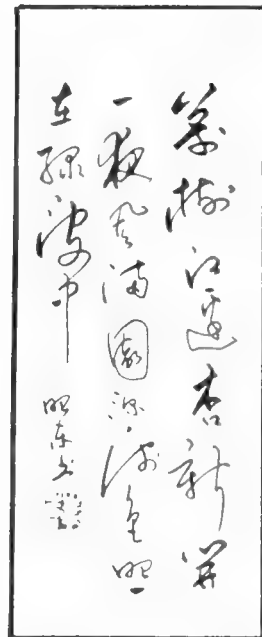 萬樹江邊杏新開
一夜風滿園深淺色照
在綠波中
昭東書